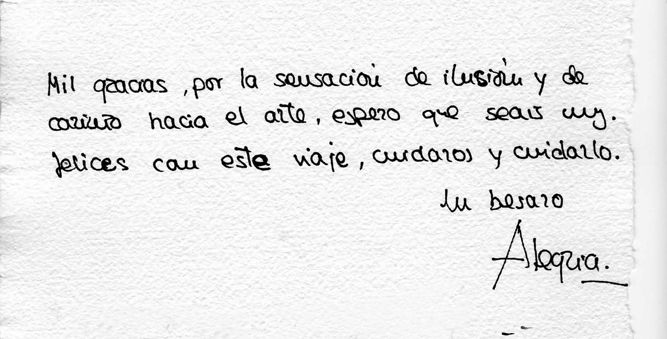 Mil gracias, por la sensación de ilusión y de
cariño hacia el arte, espero que seais muy.
felices con este viaje, cuidaros y cuidarlo.
Un besazo
Alegria.